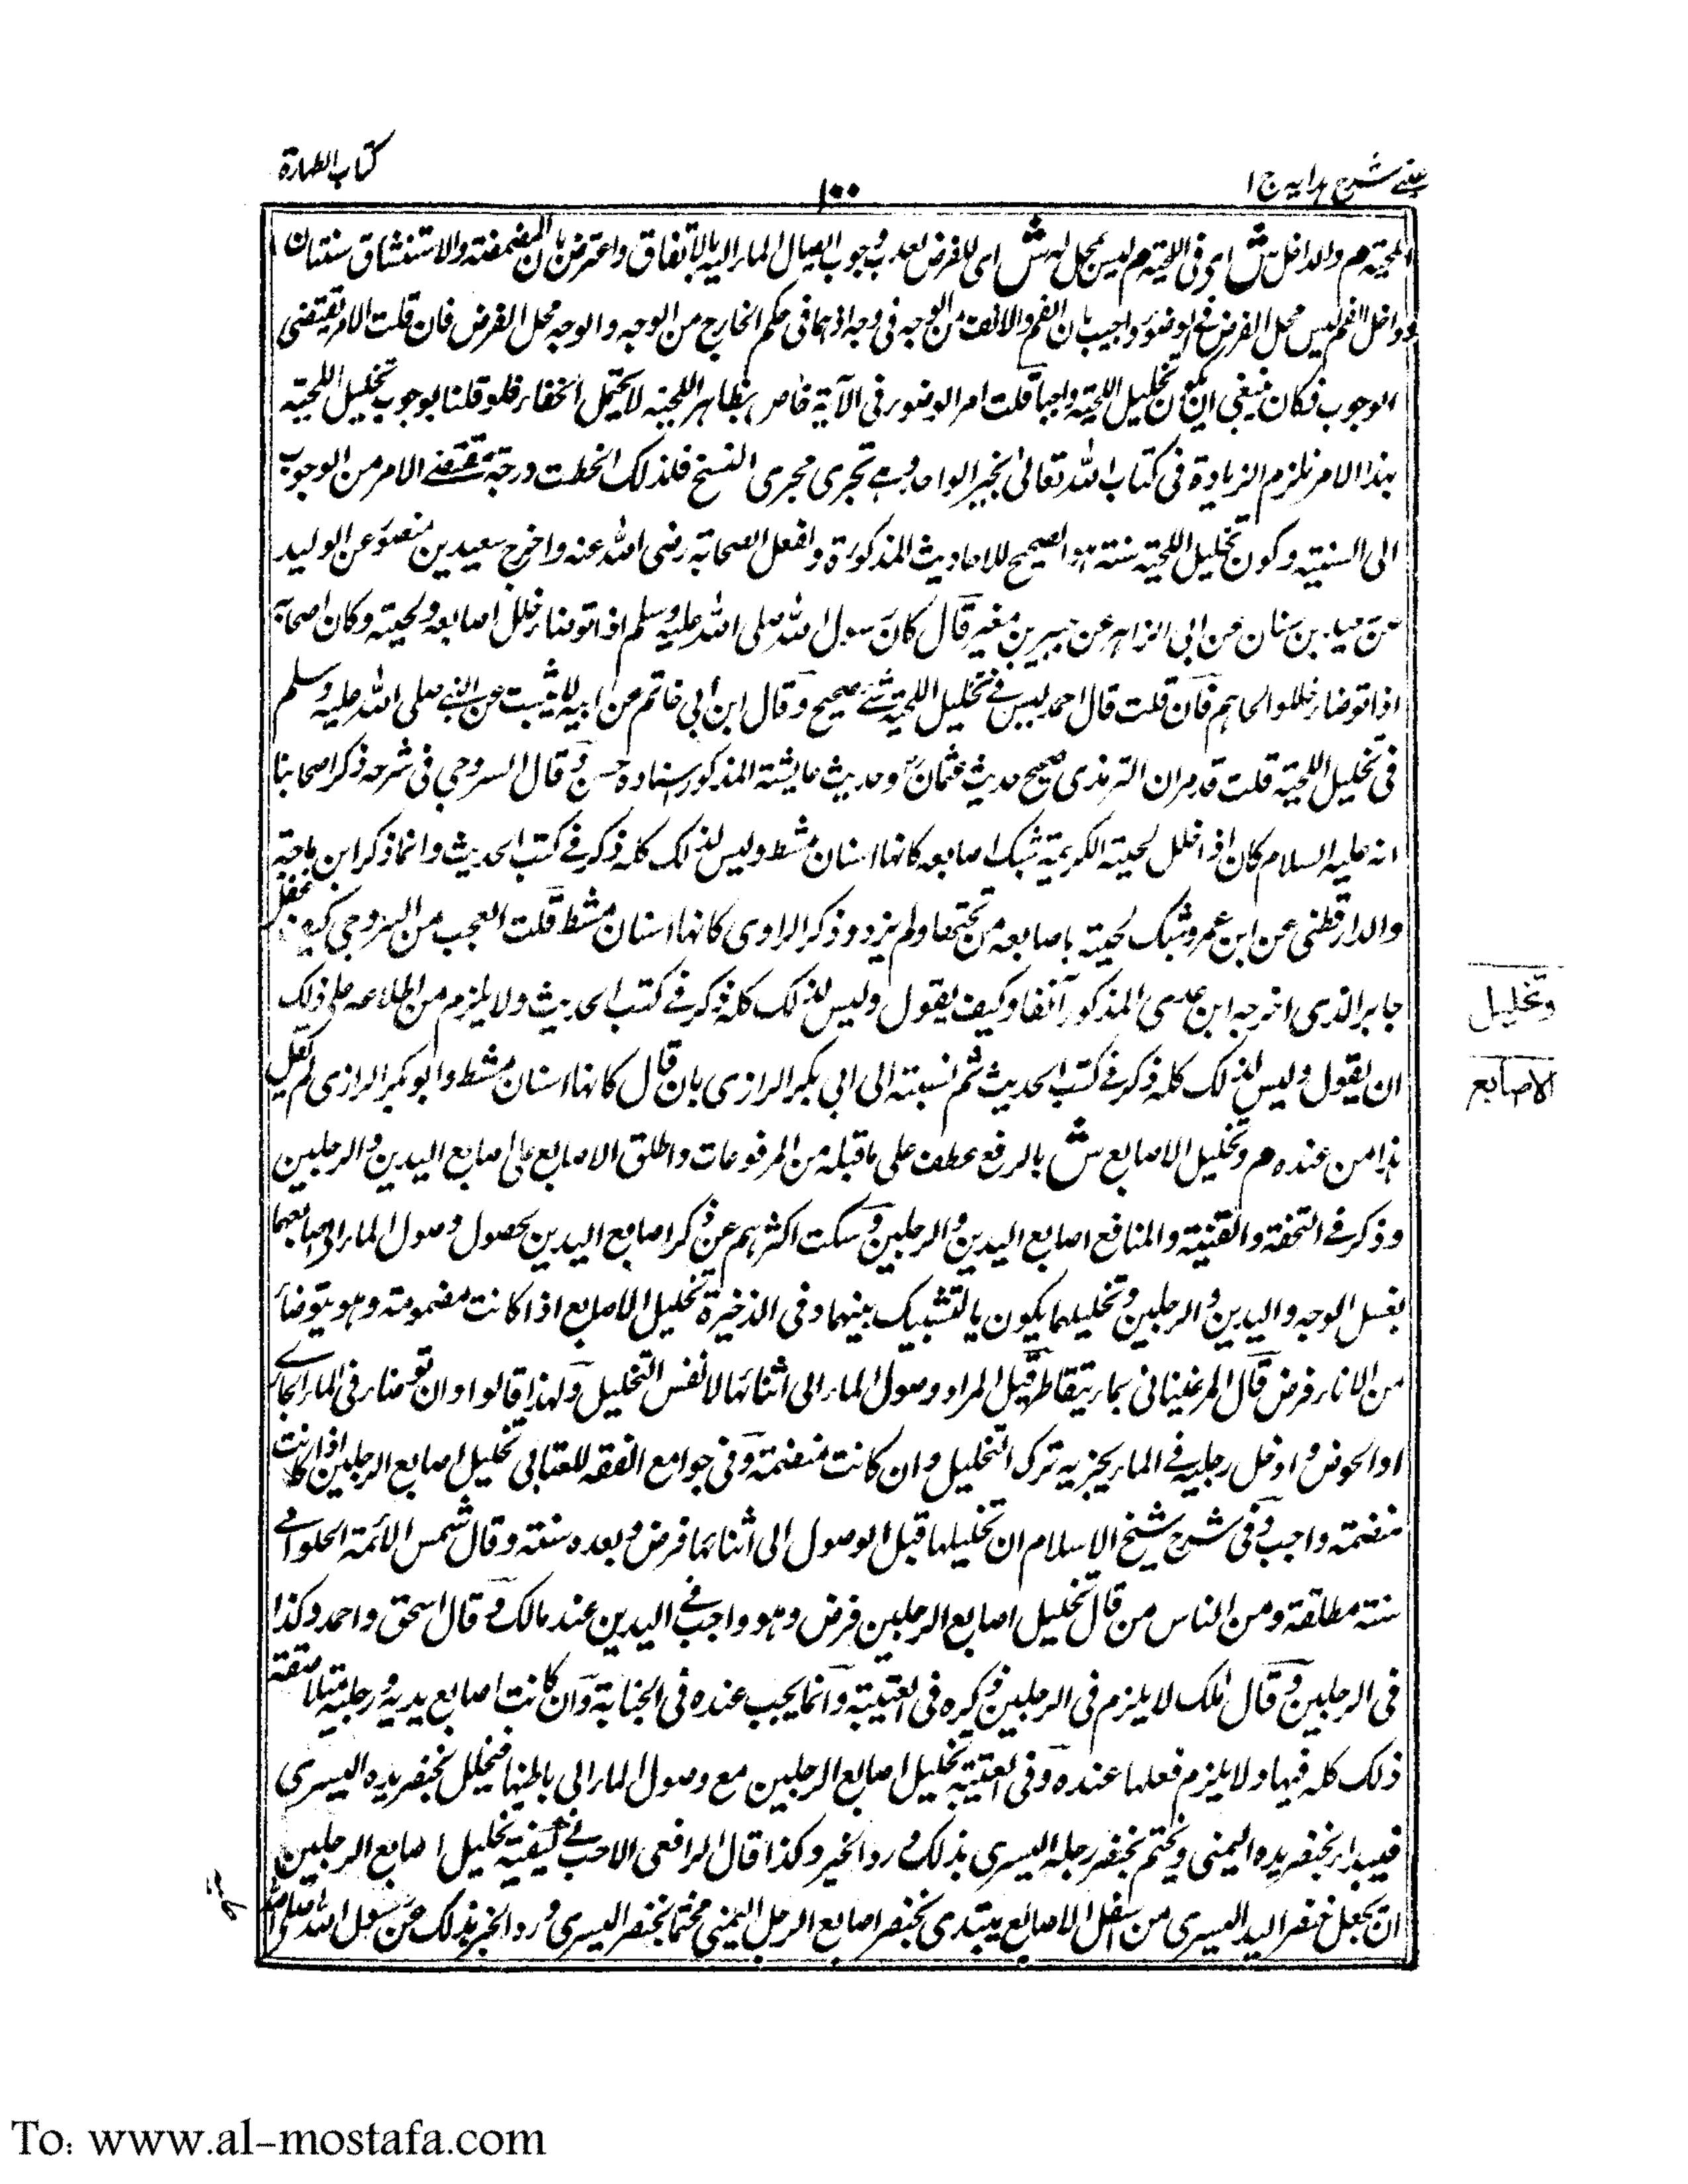 كتاب الطهارة
١٠٠
عينى شرح هدايه ج ١
اللحية م والداخل ش اى فى اللحية م ليس بمحل له ش اى للفرض لعدم وجوب ايصال الماء اليه بالاتفاق واعترض بان المضمضة والاستنشاق سنتان
وداخل الفم ليس محل الفرض فى الوضوء واجيب بان الفم والانف من الوجه فى وجه اذ هما فى حكم الخارج من الوجه والوجه محل الفرض فان قلت الامر يقتضى
الوجوب فكان ينبغى ان يكون تخليل اللحية واجبا قلت امر الوضوء فى الآية خاص بظاهر اللحية لا يحتمل الخفاء فلو قلنا بوجوب تخليل اللحية
بهذا الامر يلزم الزيادة فى كتاب الله تعالى بخبر الواحد وهے تجرى مجرى النسخ فلذلك انحطت درجة مقتضے الامر من الوجوب
الى السنية وكون تخليل اللحية سنة هو الصحيح للاحاديث المذكورة ولفعل الصحابة رضى الله عنه واخرج سعيد بن منصور عن الوليد
عن سعيد بن سنان عن ابى الزاهر عن جبير بن مغير قال كان رسول الله صلى الله عليه وسلم اذا توضاء خلل اصابعه ولحيته وكان اصحابه
اذا توضاء خللوا لحاهم فان قلت قال احمد ليس فے تخليل اللحية شئے صحيح وقال ابن ابى حاتم عن ابيه لا يثبت عن النبے صلى الله عليه وسلم
فى تخليل اللحية قلت قد مر ان الترمذى صحح حديث عثمان وحديث عايشة المذكور اسناده حسن وقال السروجى فى شرحه ذكر اصحابنا
انه عليه السلام كان اذا خلل لحيته الكريمة شبك اصابعه كانها اسنان مشط وليس لذلك كله ذكر فے كتب الحديث وانما ذكر ابن ماجة
والدارقطنى عن ابن عمر وشبك لحيته باصابعه من تحتها ولم يزد وذكر الراوى كانها اسنان مشط قلت العجب من السروجى كيف غفل
جابر الذى اخرجه ابن عدى المذكور آنفا وكيف يقول وليس لذلك كله ذكر فے كتب الحديث ولا يلزم من اطلاعه على ذلك
ان يقول وليس لذلك كله ذكر فے كتب الحديث ثم نسبته الى ابى بكر الرازى بان قال كانها اسنان مشط وابو بكر الرازى لم يقل
هذا من عنده م وتخليل الاصابع ش بالرفع عطف على ما قبله من المرفوعات واطلق الاصابع على اصابع اليدين والرجلين
وذكر فے التحفة والقنية والمنافع اصابع اليدين والرجلين وسكت اكثرهم عن ذكر اصابع اليدين بحصول وصول الماء الى اصابعهما
بغسل الوجه واليدين والرجلين وتخليلهما يكون بالتشبيك بينهما وفى الذخيرة تخليل الاصابع اذا كانت مضمومة وهو يتوضاء
من الاناء فرض قال المرغينانى بماء يتقاطر قيل المراد وصول الماء الى اثنائها لا نفس التخليل ولهذا قالوا وان توضاء فى الماء الجارے
او الحوض او ادخل رجليه فے الماء يجزيه ترك التخليل وان كانت منضمة وفى جوامع الفقه للعتابى تخليل اصابع الرجلين اذا كانت
منضمة واجب وفى شرح شيخ الاسلام ان تخليلها قبل الوصول الى اثنائها فرض وبعده سنة وقال شمس الائمة الحلوانے
سنة مطلقة ومن الناس من قال تخليل اصابع الرجلين فرض وهو واجب فے اليدين عند مالك وقال اسحق واحمد وكذا
فى الرجلين وقال ملك لا يلزم فى الرجلين وذكره فى العتبية وانما يجب عنده فى الجنابة وان كانت اصابع يديه ورجليه متلاصقة
ذلك كله فيها ولا يلزم فعلها عنده وفى العتبية تخليل اصابع الرجلين مع وصول الماء الى باطنها فيخلل بخنصر يده اليسرى
فيبداء بخنصر يده اليمنى ويختم بخنصر رجله اليسرى بذلك ورد الخبر وكذا قال الرافعى الاحب فے كيفية تخليل اصابع الرجلين
ان يجعل خنصر اليد اليسرى من اسفل الاصابع يبتدى بخنصر اصابع الرجل اليمنى مختما بخنصر اليسرى ورد الخبر بذلك عن رسول الله صلى الله
وتخليل
الاصابع
To: www.al-mostafa.com